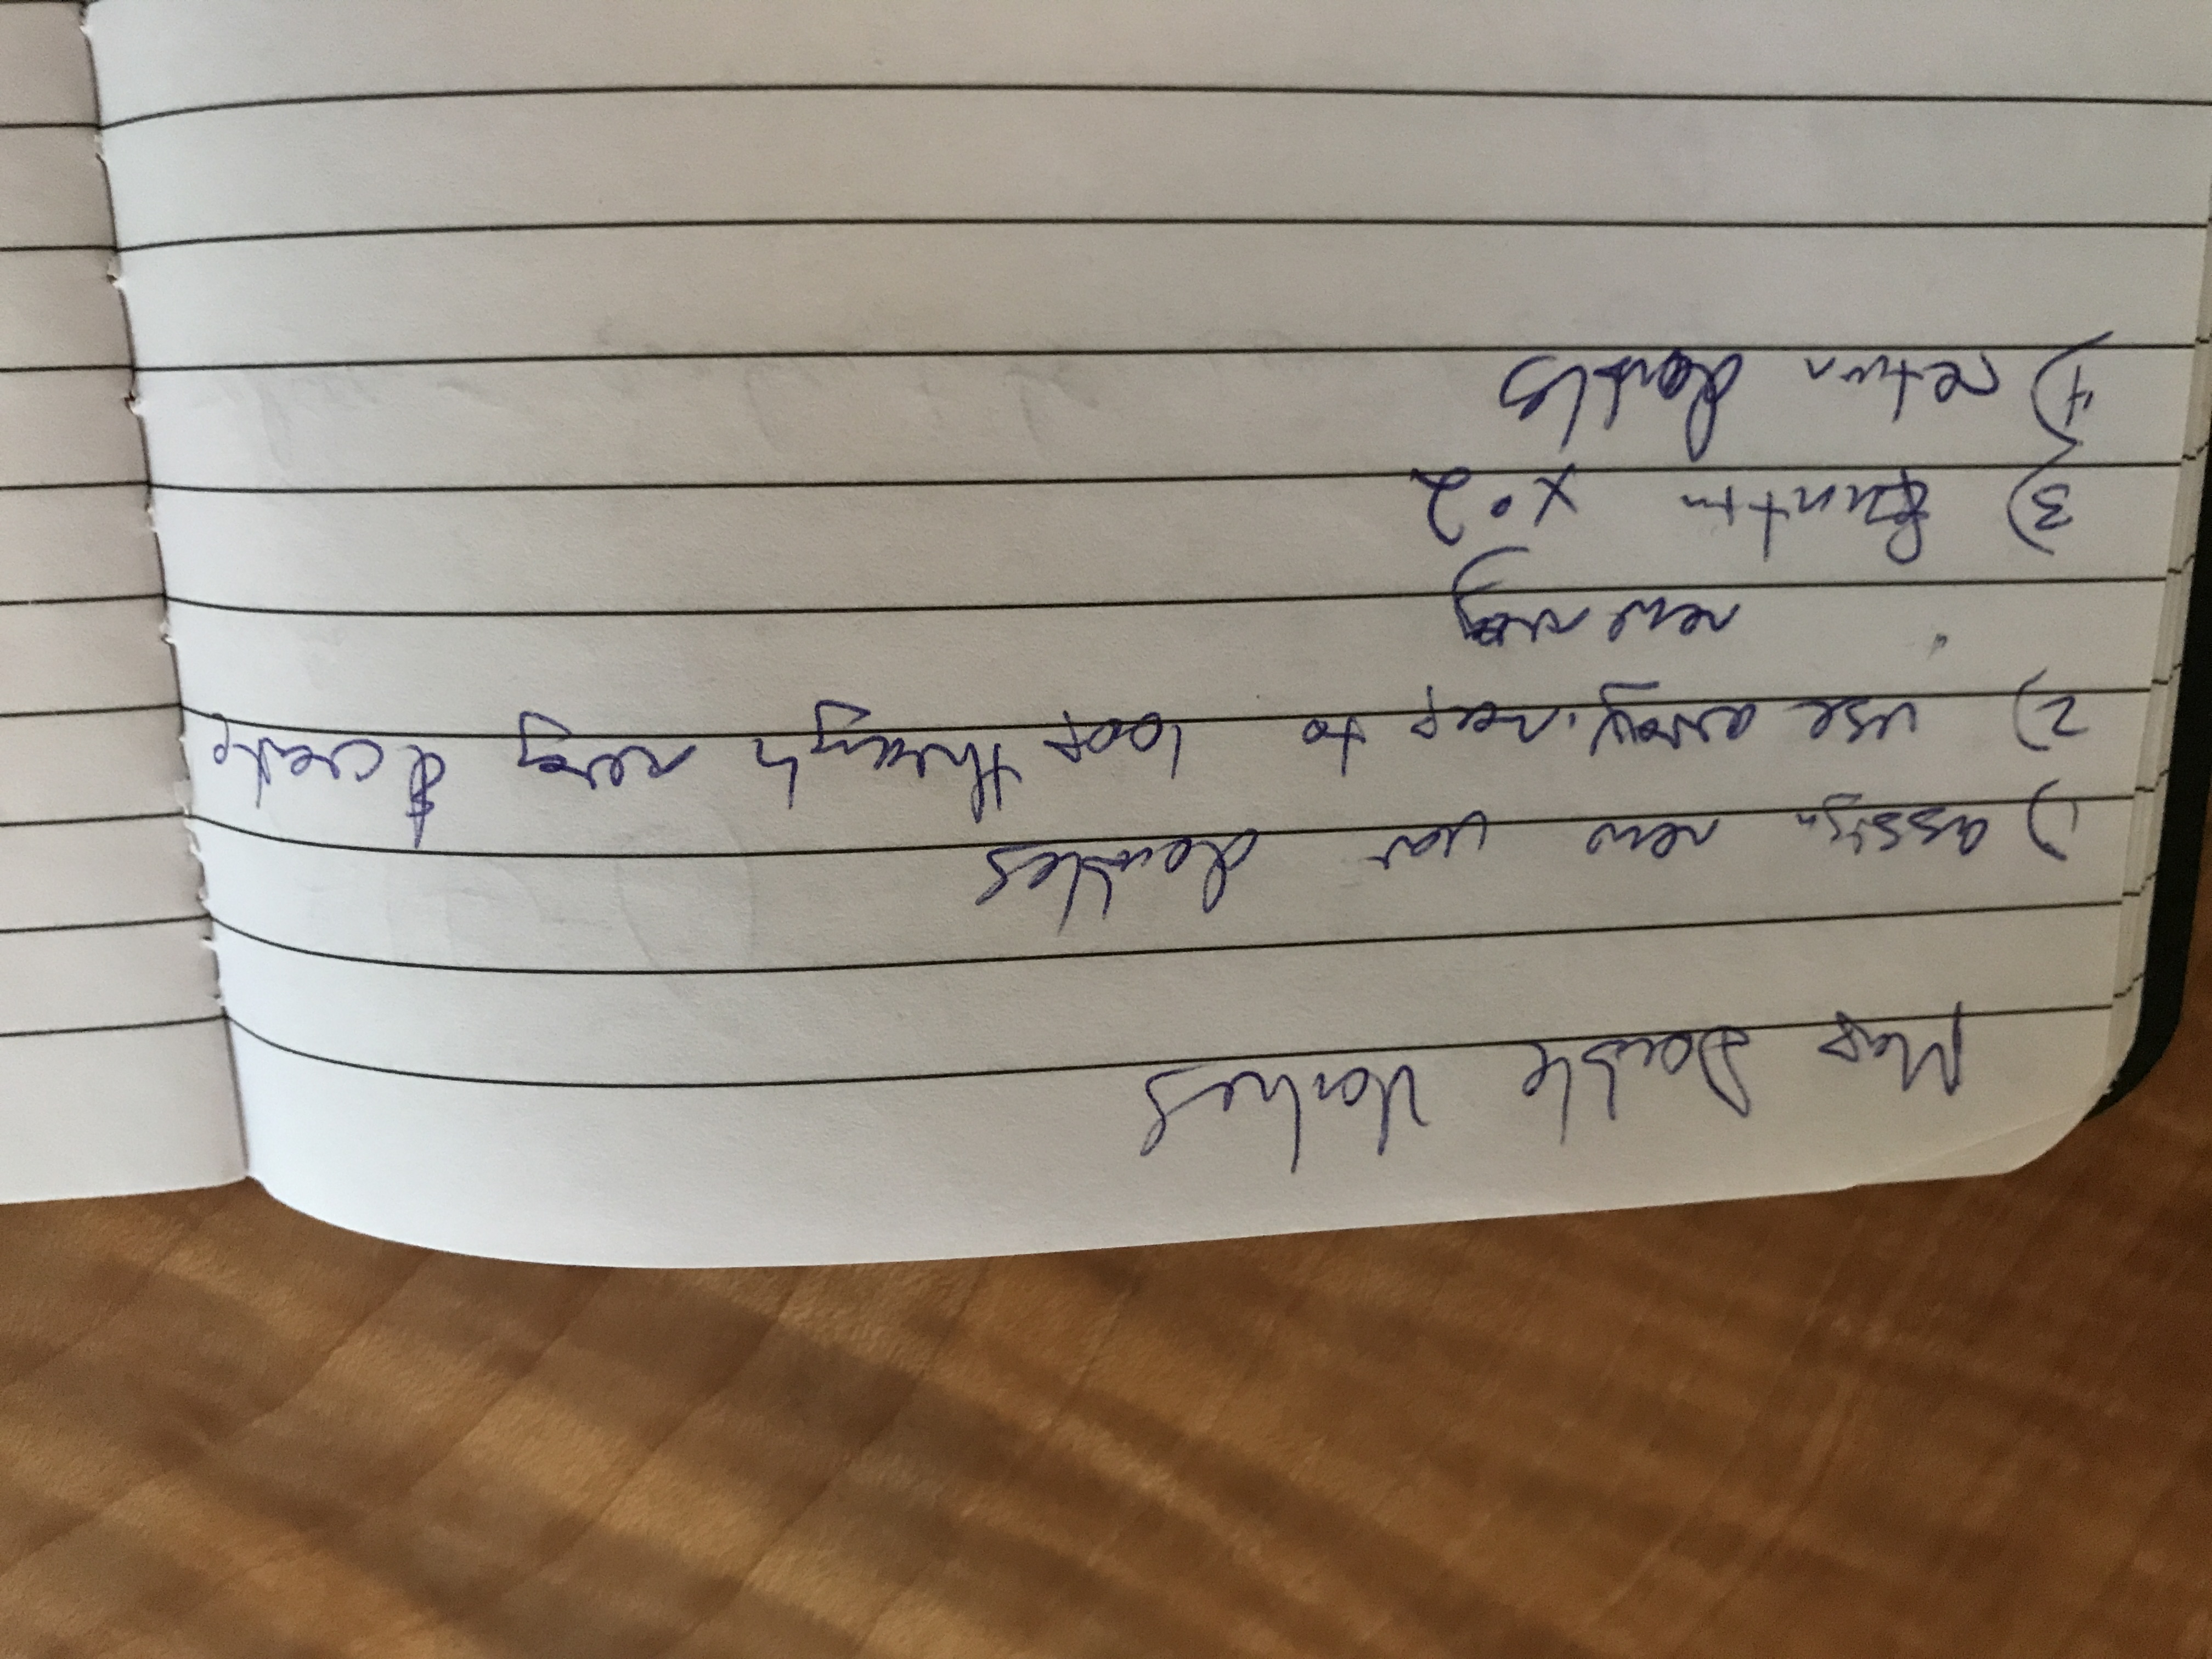 Map Double Values
1) assign new var doubles
2) use array.map to loop through array & create
new array
3) function x•2
4) return doubles